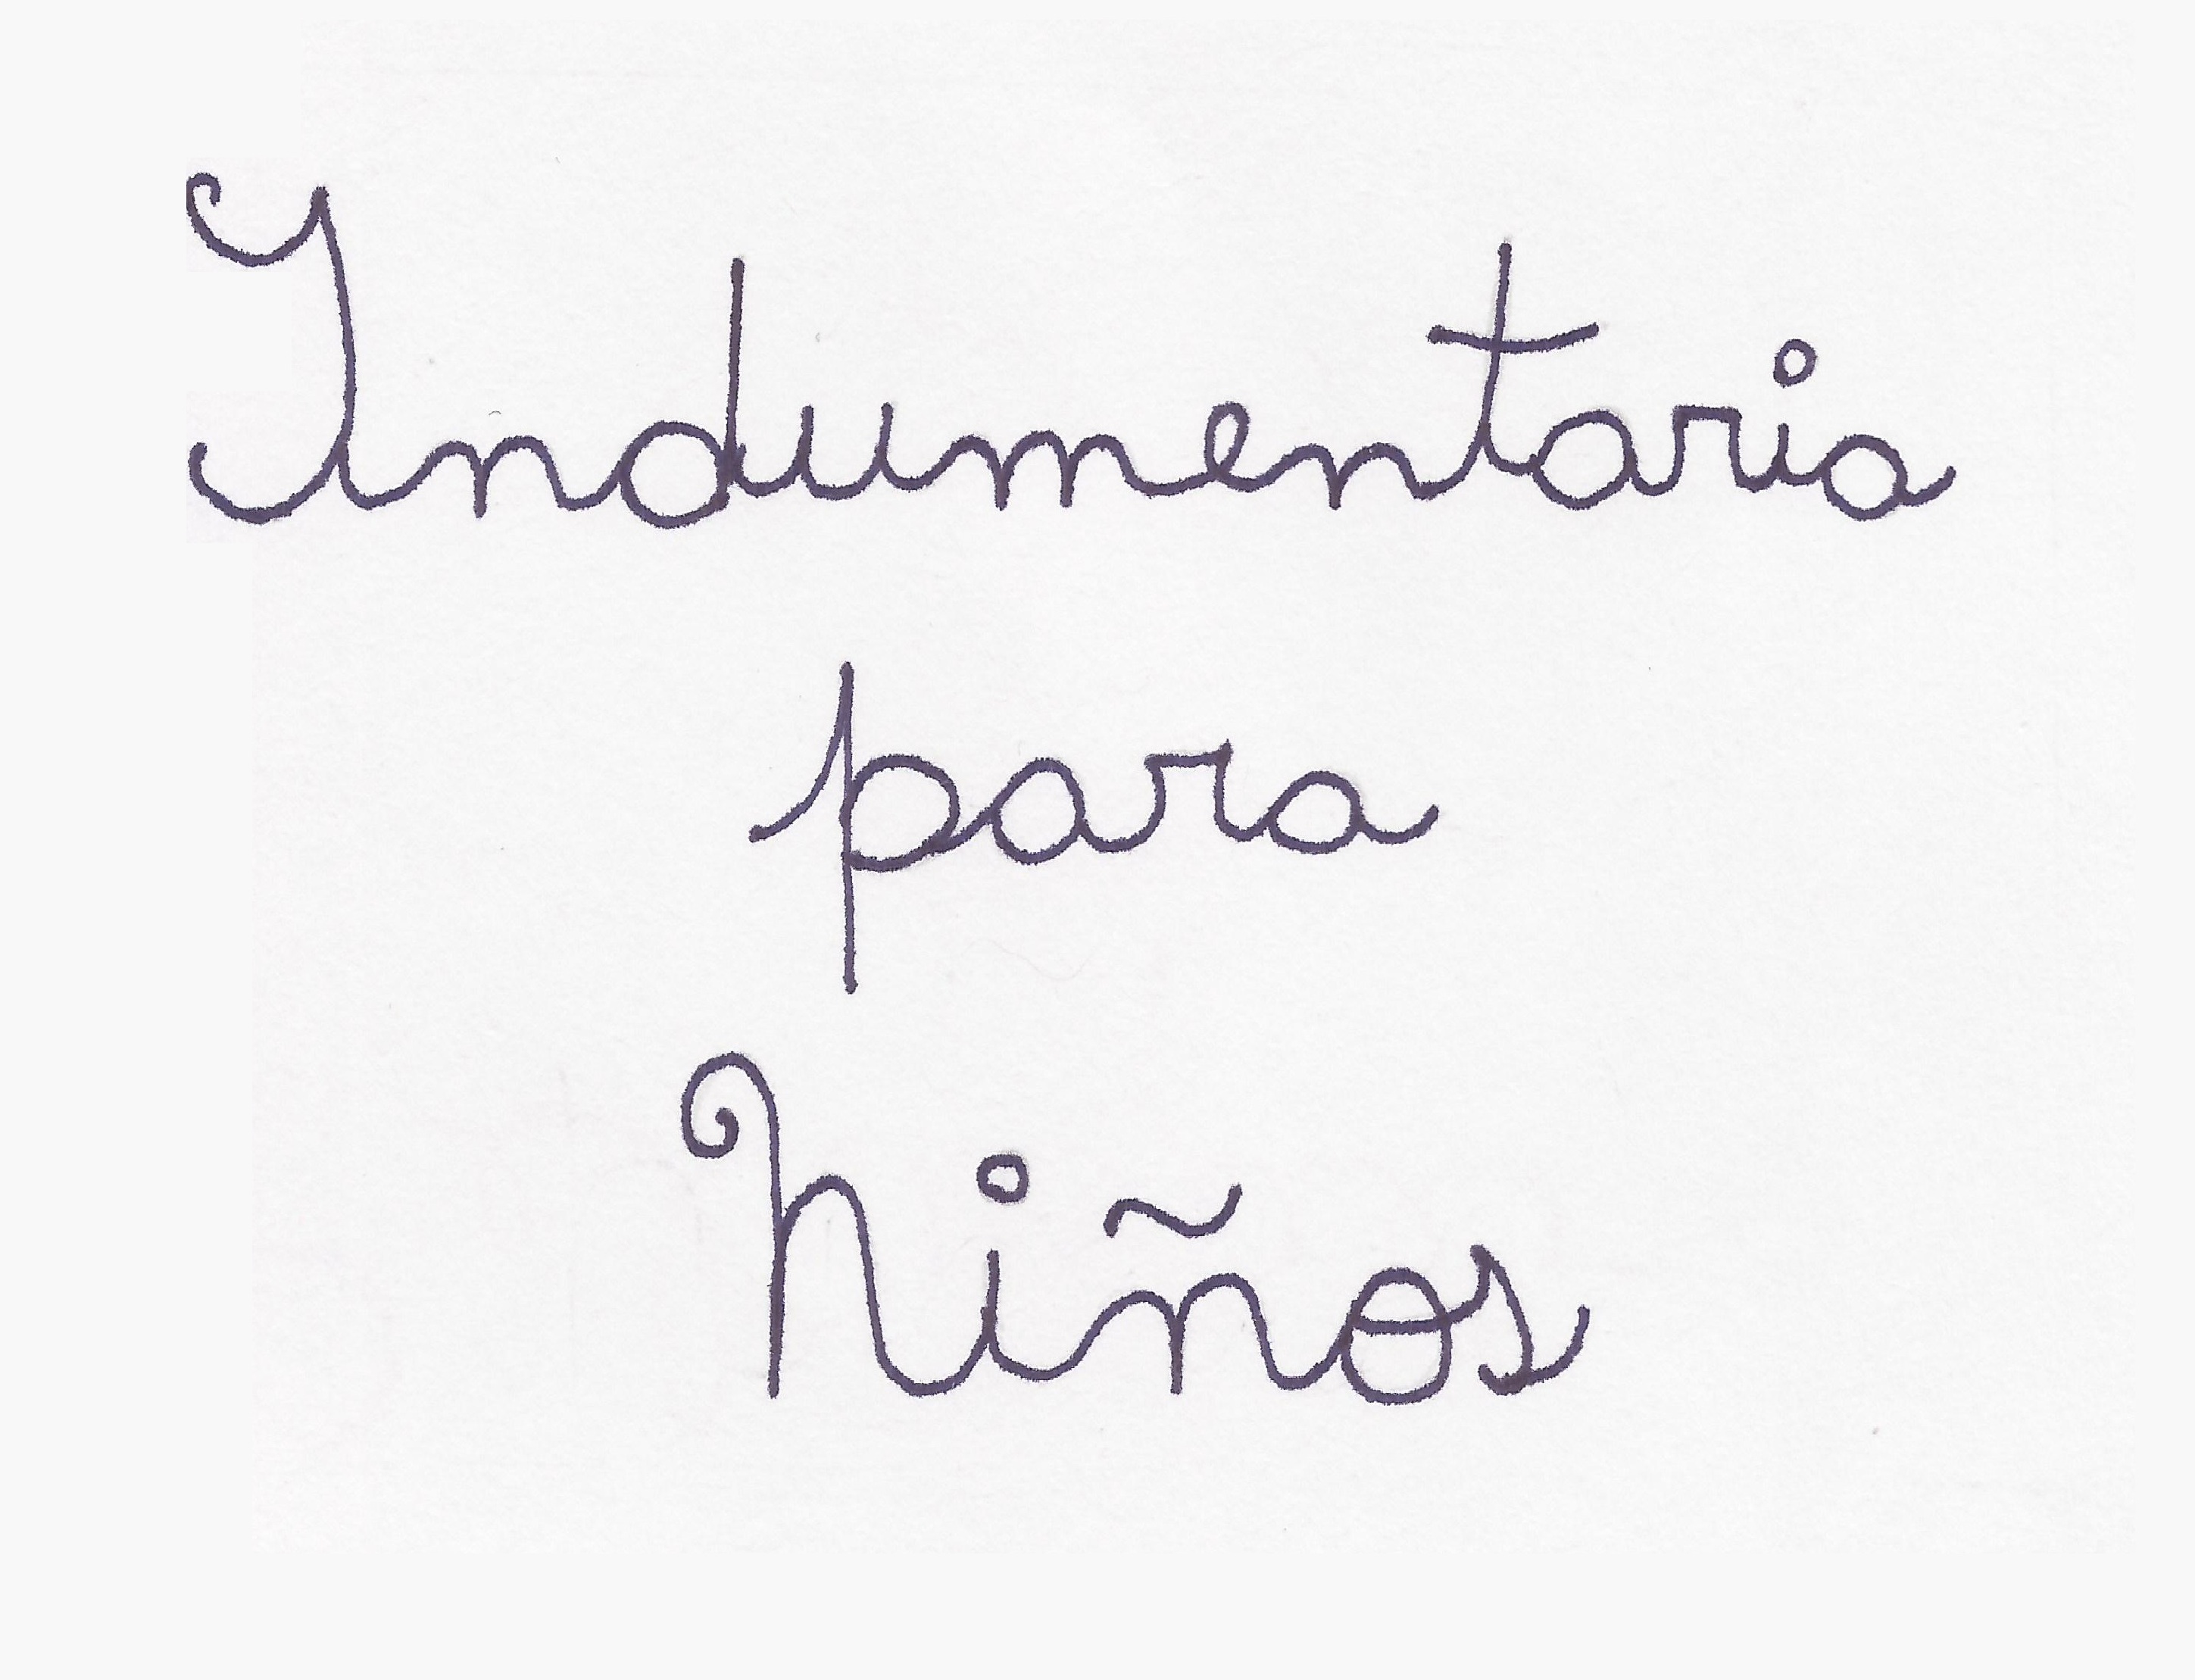 Indumentaria
para
Niños